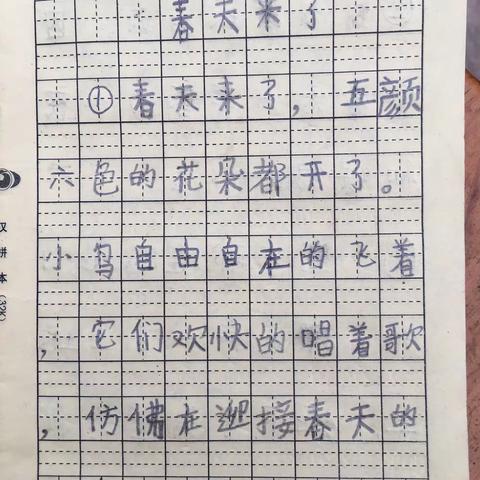 春天来了
①春天来了，五颜
六色的花朵都开了。
小鸟自由自在的飞着
，它们欢快的唱着歌
，仿佛在迎接春天的
汉拼本(32K)